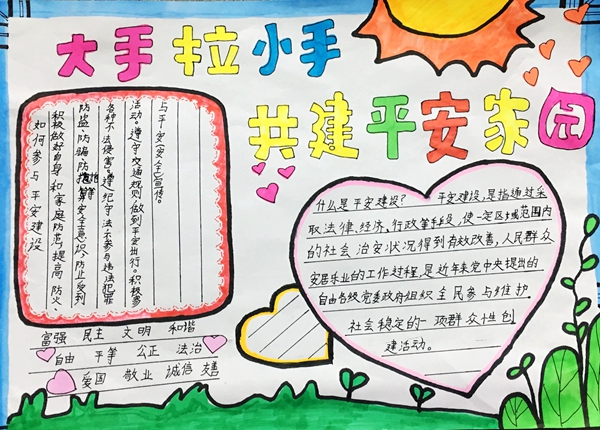 大手拉小手
共建平安家园
如何参与平安建设
积极做好自身和家庭防范,提高防火
防盗、防骗防等安全意识,防止受到
各种不法侵害。遵纪守法不参与违法犯罪
活动。遵守交通规则,做到平安出行。积极参
与平安(安全)宣传。
什么是平安建设? 平安建设,是指通过采
取法律、经济、行政等手段,使一定区域范围内
的社会治安状况得到有效改善,人民群众
安居乐业的工作过程,是近年来党中央提出的
由各级党委政府组织全民参与维护
社会稳定的一项群众性创
建活动。
富强 民主 文明 和谐
自由 平等 公正 法治
爱国 敬业 诚信 友善